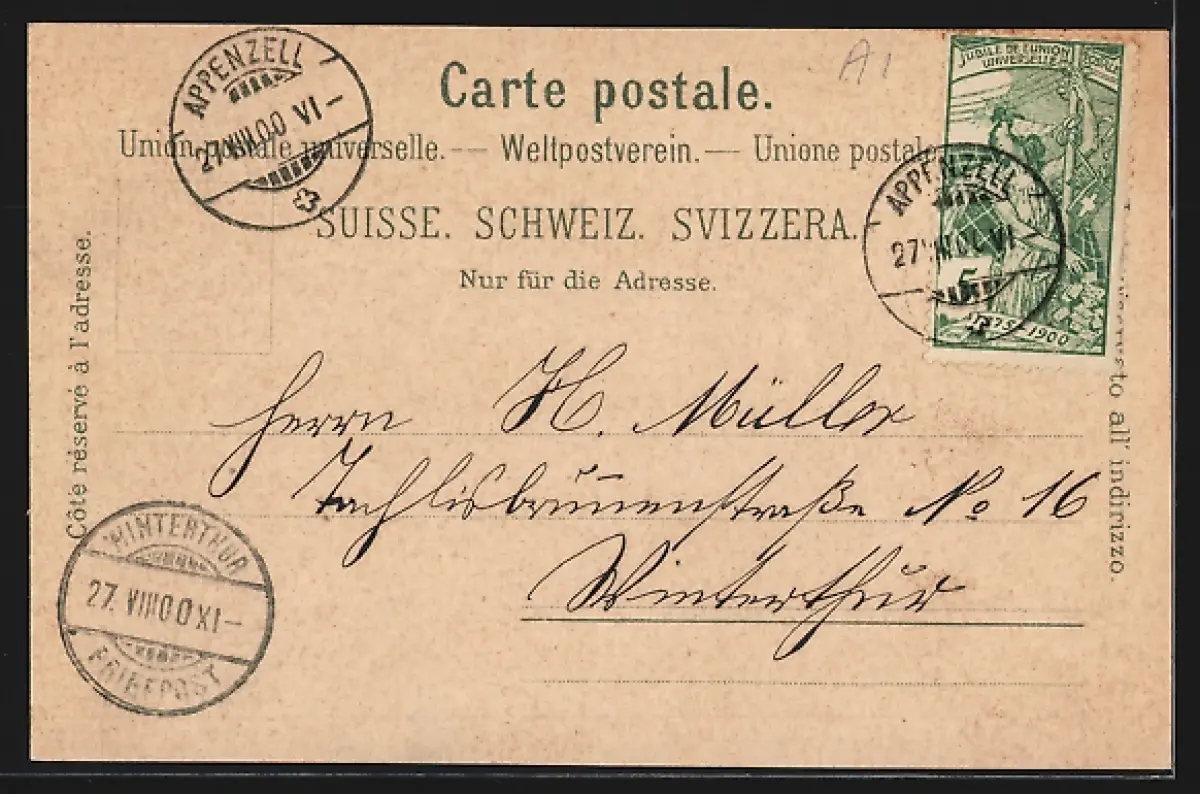 A1
Carte postale.
Union postale universelle. — Weltpostverein. — Unione postale
SUISSE. SCHWEIZ. SVIZZERA.
Nur für die Adresse.
Côté réservé à l'adresse.
all' indirizzo.
JUBILÉ DE L'UNION POSTALE
UNIVERSELLE
5
1875-1900
APPENZELL
27.VIII.00 VI-
APPENZELL
27.VIII.00 VI-
Herrn H. Müller
Tachlisbrunnenstraße No 16
Winterthur
WINTERTHUR
27. VIII 00 XI-
BRIEFPOST